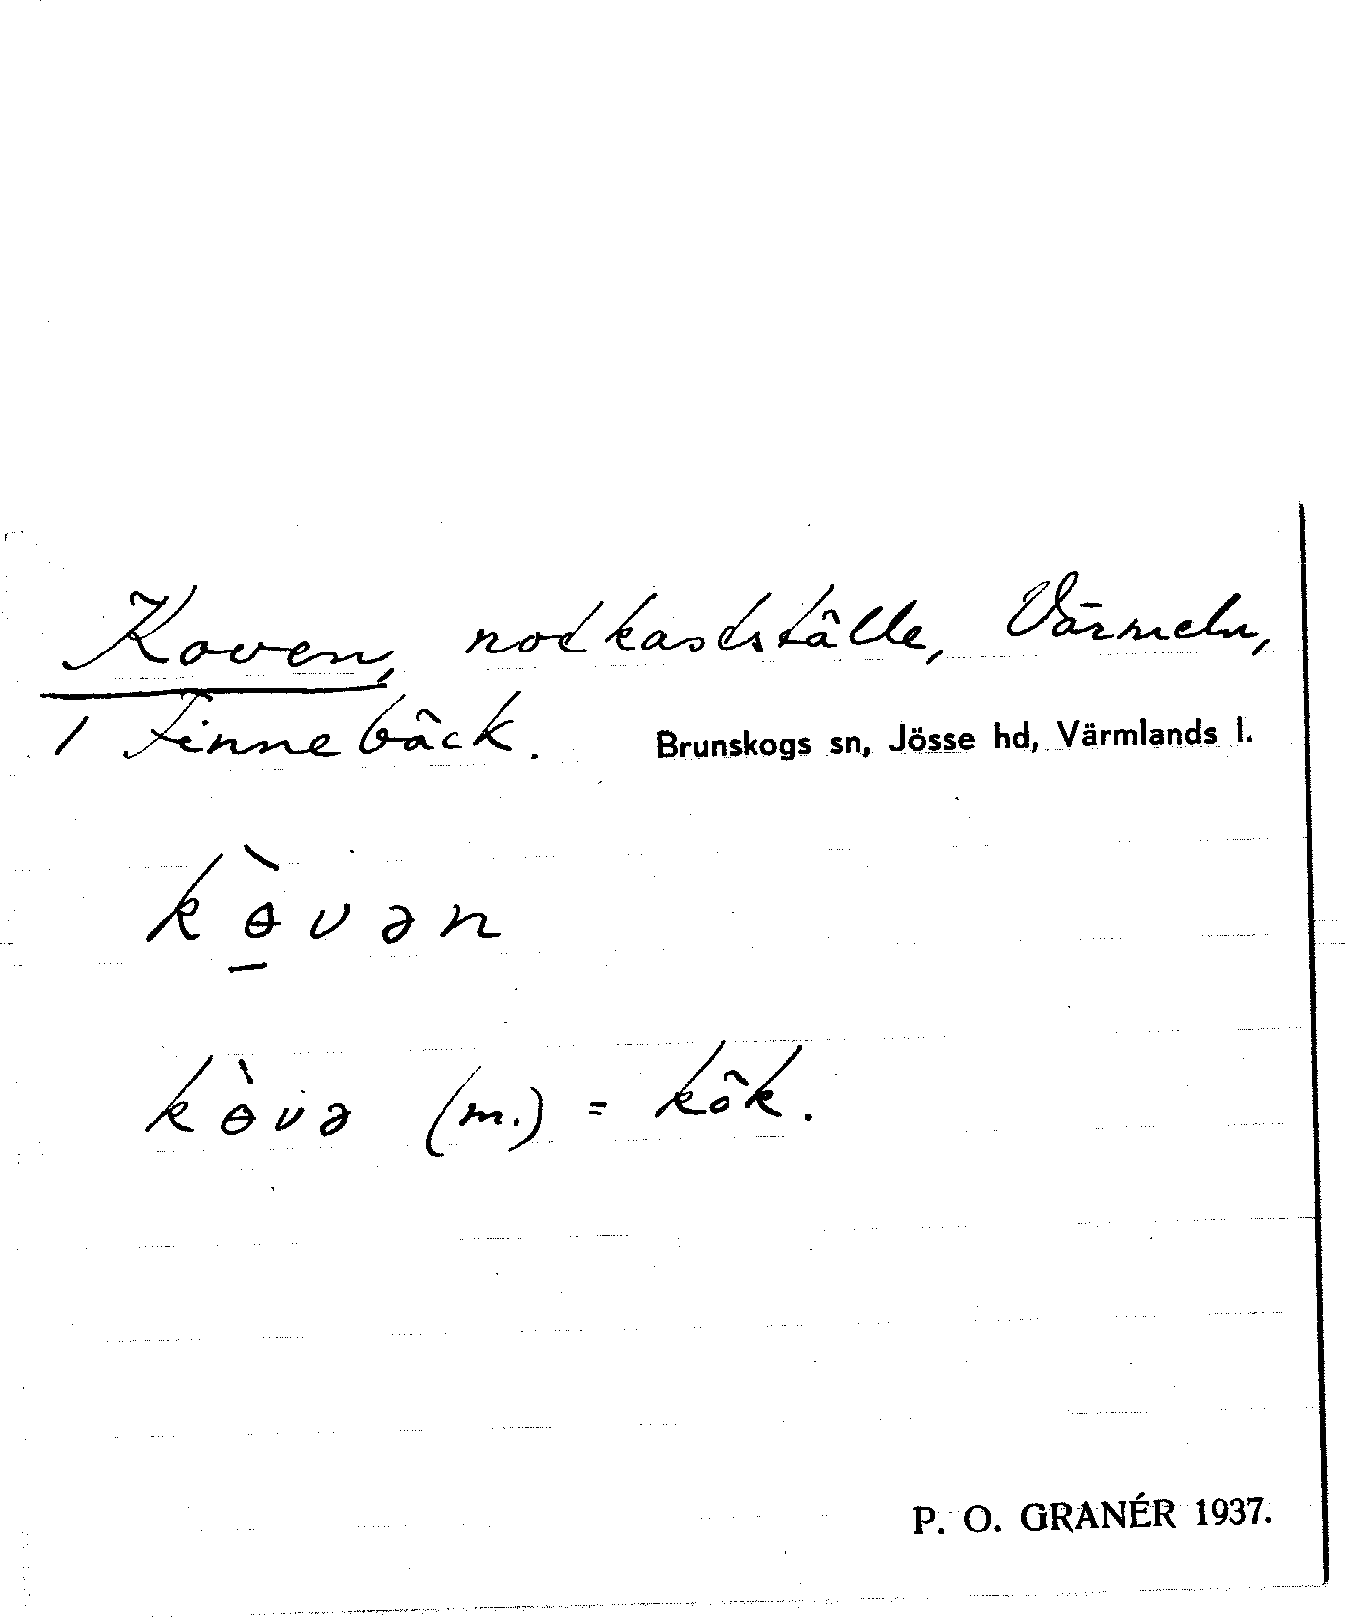 Koven, notkastställe, Värmeln,
1 Finnebäck. Brunskogs sn, Jösse hd, Värmlands l.
kɵ̱̀vən
kɵ̀və (m.) = kök.
P. O. GRANÉR 1937.